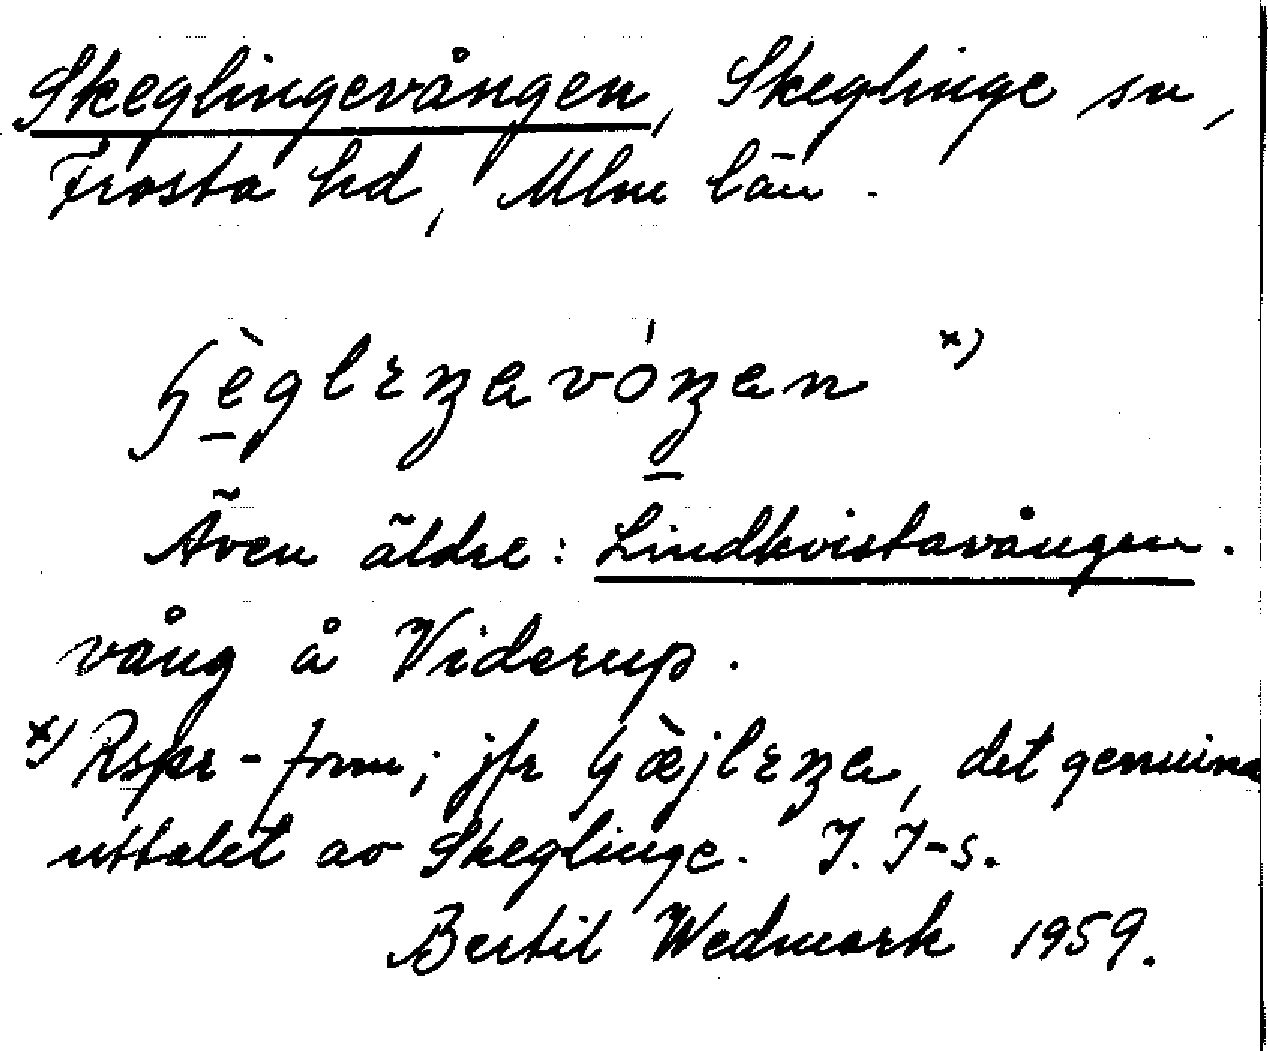 Skeglingevången, Skeglinge sn,
Frosta hd, Mlm län.
ɧèglɪŋavóŋan x)
Även äldre: Lindkvistavången.
vång å Viderup.
x) Rspr-form; jfr ɧæ̀jlɪŋa, det genuina
uttalet av Skeglinge. I. I-s.
Bertil Wedmark 1959.